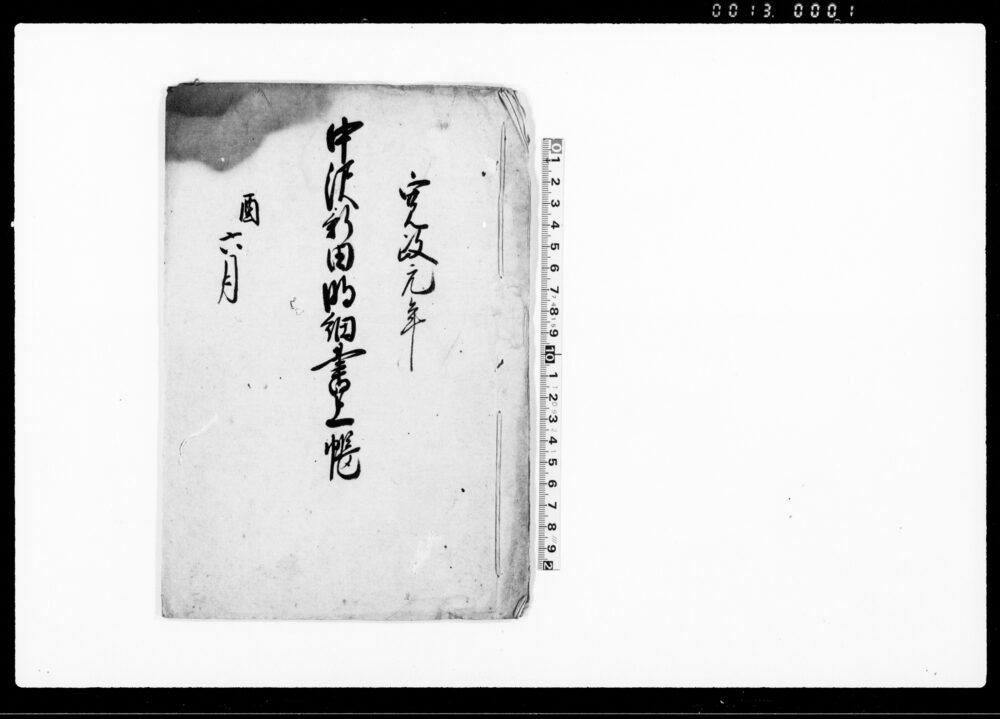 0013 0001
寛政元年
中沢新田明細書上帳
酉六月
0 1 2 3 4 5 6 7 8 9 10 1 2 3 4 5 6 7 8 9 2